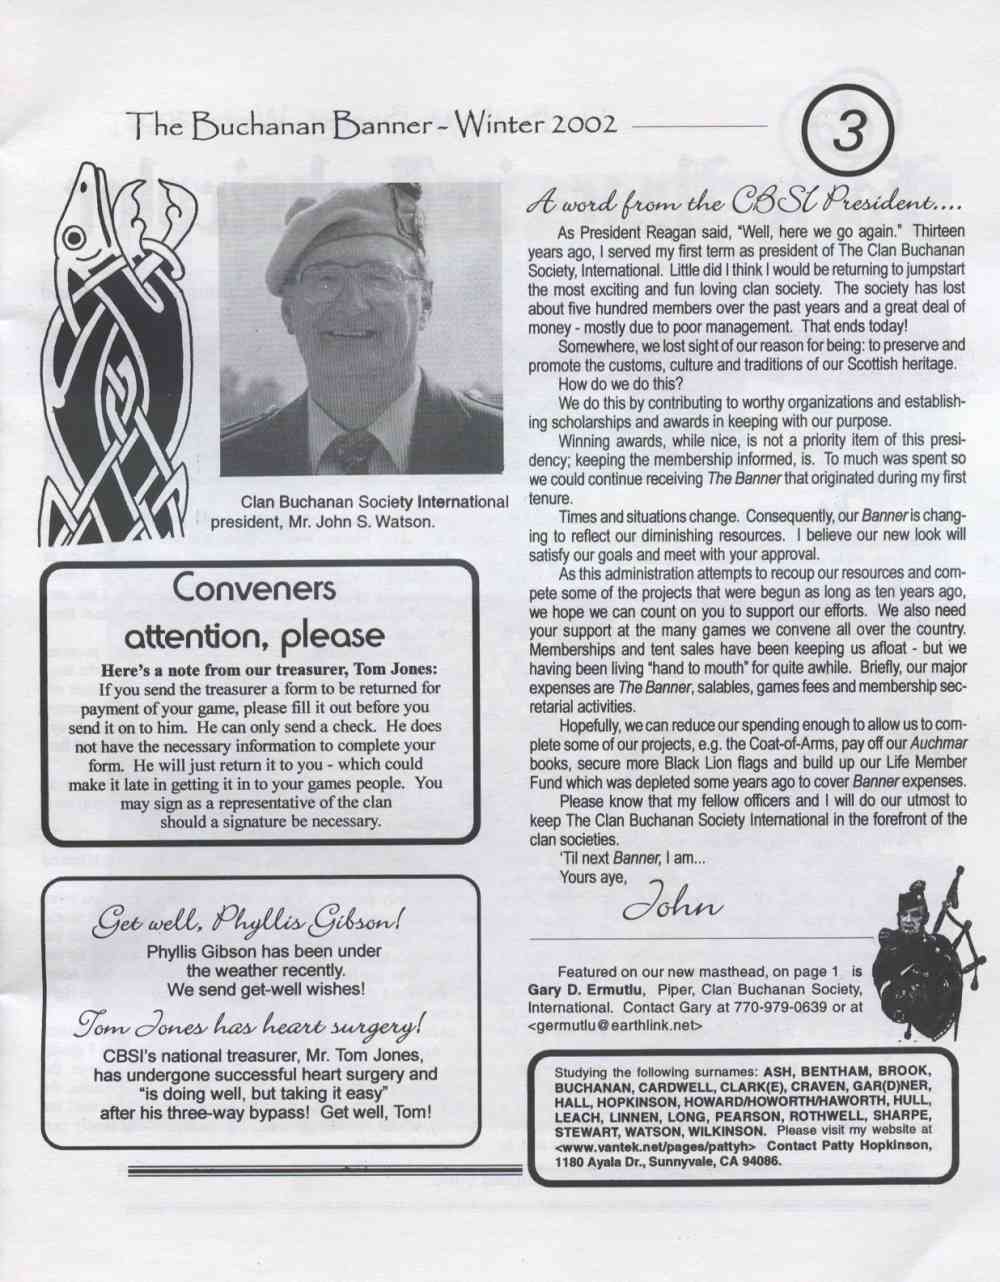 The Buchanan Banner - Winter 2002
3
Clan Buchanan Society International
president, Mr. John S. Watson.
Conveners
attention, please
Here's a note from our treasurer, Tom Jones:
If you send the treasurer a form to be returned for
payment of your game, please fill it out before you
send it on to him. He can only send a check. He does
not have the necessary information to complete your
form. He will just return it to you - which could
make it late in getting it in to your games people. You
may sign as a representative of the clan
should a signature be necessary.
Get well, Phyllis Gibson!
Phyllis Gibson has been under
the weather recently.
We send get-well wishes!
Tom Jones has heart surgery!
CBSI's national treasurer, Mr. Tom Jones,
has undergone successful heart surgery and
"is doing well, but taking it easy"
after his three-way bypass! Get well, Tom!
A word from the CBSI President....
As President Reagan said, "Well, here we go again." Thirteen
years ago, I served my first term as president of The Clan Buchanan
Society, International. Little did I think I would be returning to jumpstart
the most exciting and fun loving clan society. The society has lost
about five hundred members over the past years and a great deal of
money - mostly due to poor management. That ends today!
Somewhere, we lost sight of our reason for being: to preserve and
promote the customs, culture and traditions of our Scottish heritage.
How do we do this?
We do this by contributing to worthy organizations and establish-
ing scholarships and awards in keeping with our purpose.
Winning awards, while nice, is not a priority item of this presi-
dency; keeping the membership informed, is. To much was spent so
we could continue receiving The Banner that originated during my first
tenure.
Times and situations change. Consequently, our Banner is chang-
ing to reflect our diminishing resources. I believe our new look will
satisfy our goals and meet with your approval.
As this administration attempts to recoup our resources and com-
pete some of the projects that were begun as long as ten years ago,
we hope we can count on you to support our efforts. We also need
your support at the many games we convene all over the country.
Memberships and tent sales have been keeping us afloat - but we
having been living "hand to mouth" for quite awhile. Briefly, our major
expenses are The Banner, salables, games fees and membership sec-
retarial activities.
Hopefully, we can reduce our spending enough to allow us to com-
plete some of our projects, e.g. the Coat-of-Arms, pay off our Auchmar
books, secure more Black Lion flags and build up our Life Member
Fund which was depleted some years ago to cover Banner expenses.
Please know that my fellow officers and I will do our utmost to
keep The Clan Buchanan Society International in the forefront of the
clan societies.
'Til next Banner, I am...
Yours aye,
John
Featured on our new masthead, on page 1 is
Gary D. Ermutlu, Piper, Clan Buchanan Society,
International. Contact Gary at 770-979-0639 or at
<germutlu@earthlink.net>
Studying the following surnames: ASH, BENTHAM, BROOK,
BUCHANAN, CARDWELL, CLARK(E), CRAVEN, GAR(D)NER,
HALL, HOPKINSON, HOWARD/HOWORTH/HAWORTH, HULL,
LEACH, LINNEN, LONG, PEARSON, ROTHWELL, SHARPE,
STEWART, WATSON, WILKINSON. Please visit my website at
<www.vantek.net/pages/pattyh> Contact Patty Hopkinson,
1180 Ayala Dr., Sunnyvale, CA 94086.